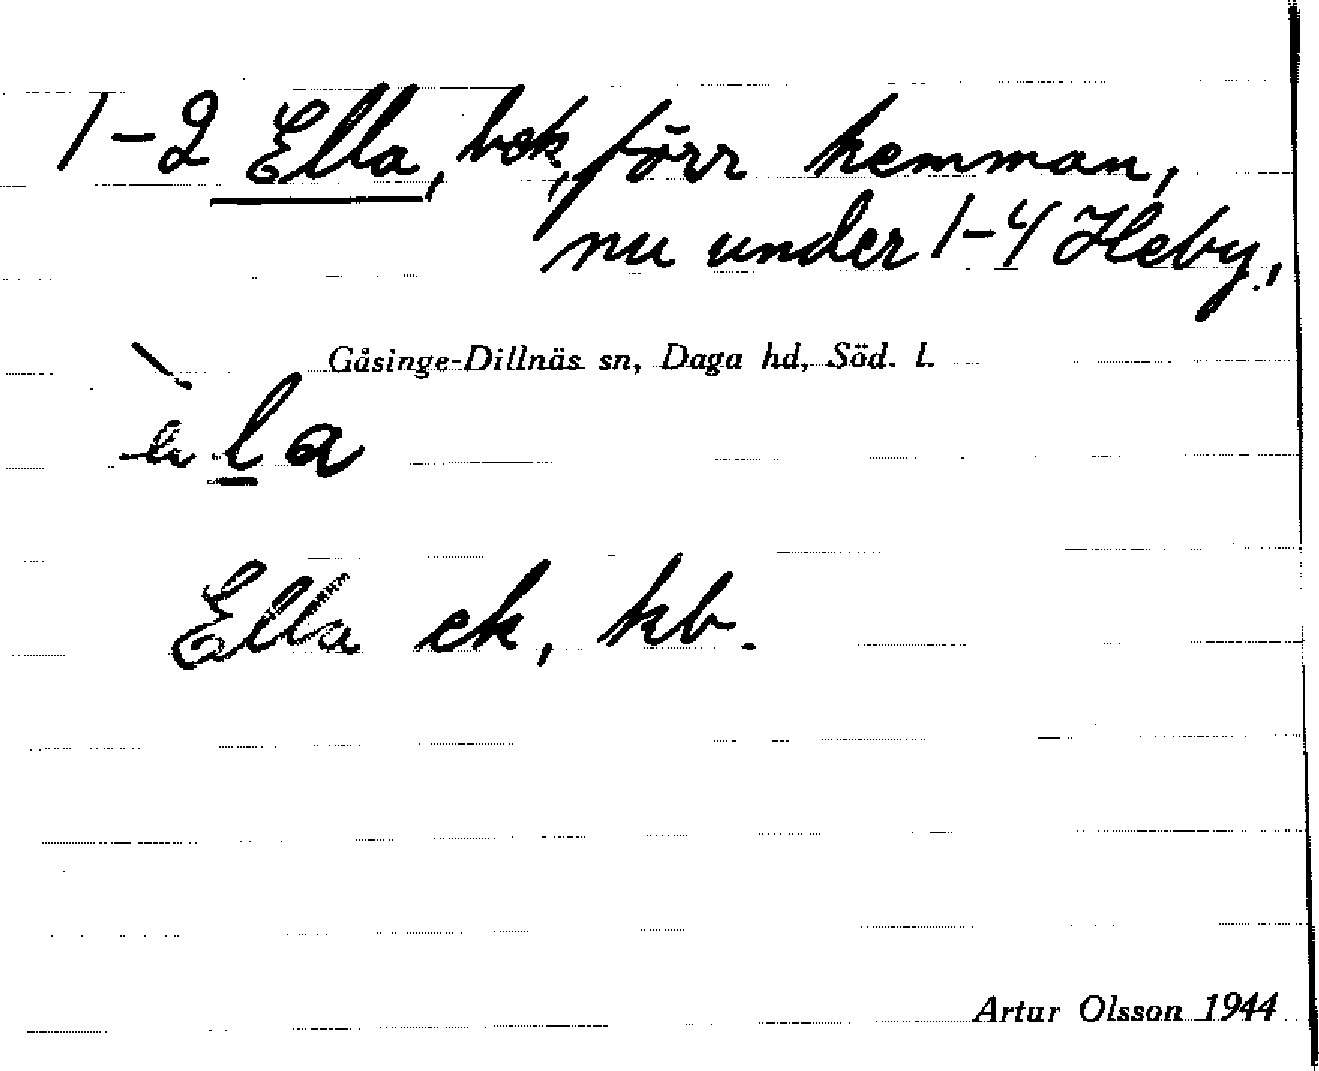 1-2 Ella, bok, förr hemman,
nu under 1-4 Heby,
Gåsinge-Dillnäs sn, Daga hd, Söd. l.
la
Ella ek, kb.
Artur Olsson 1944